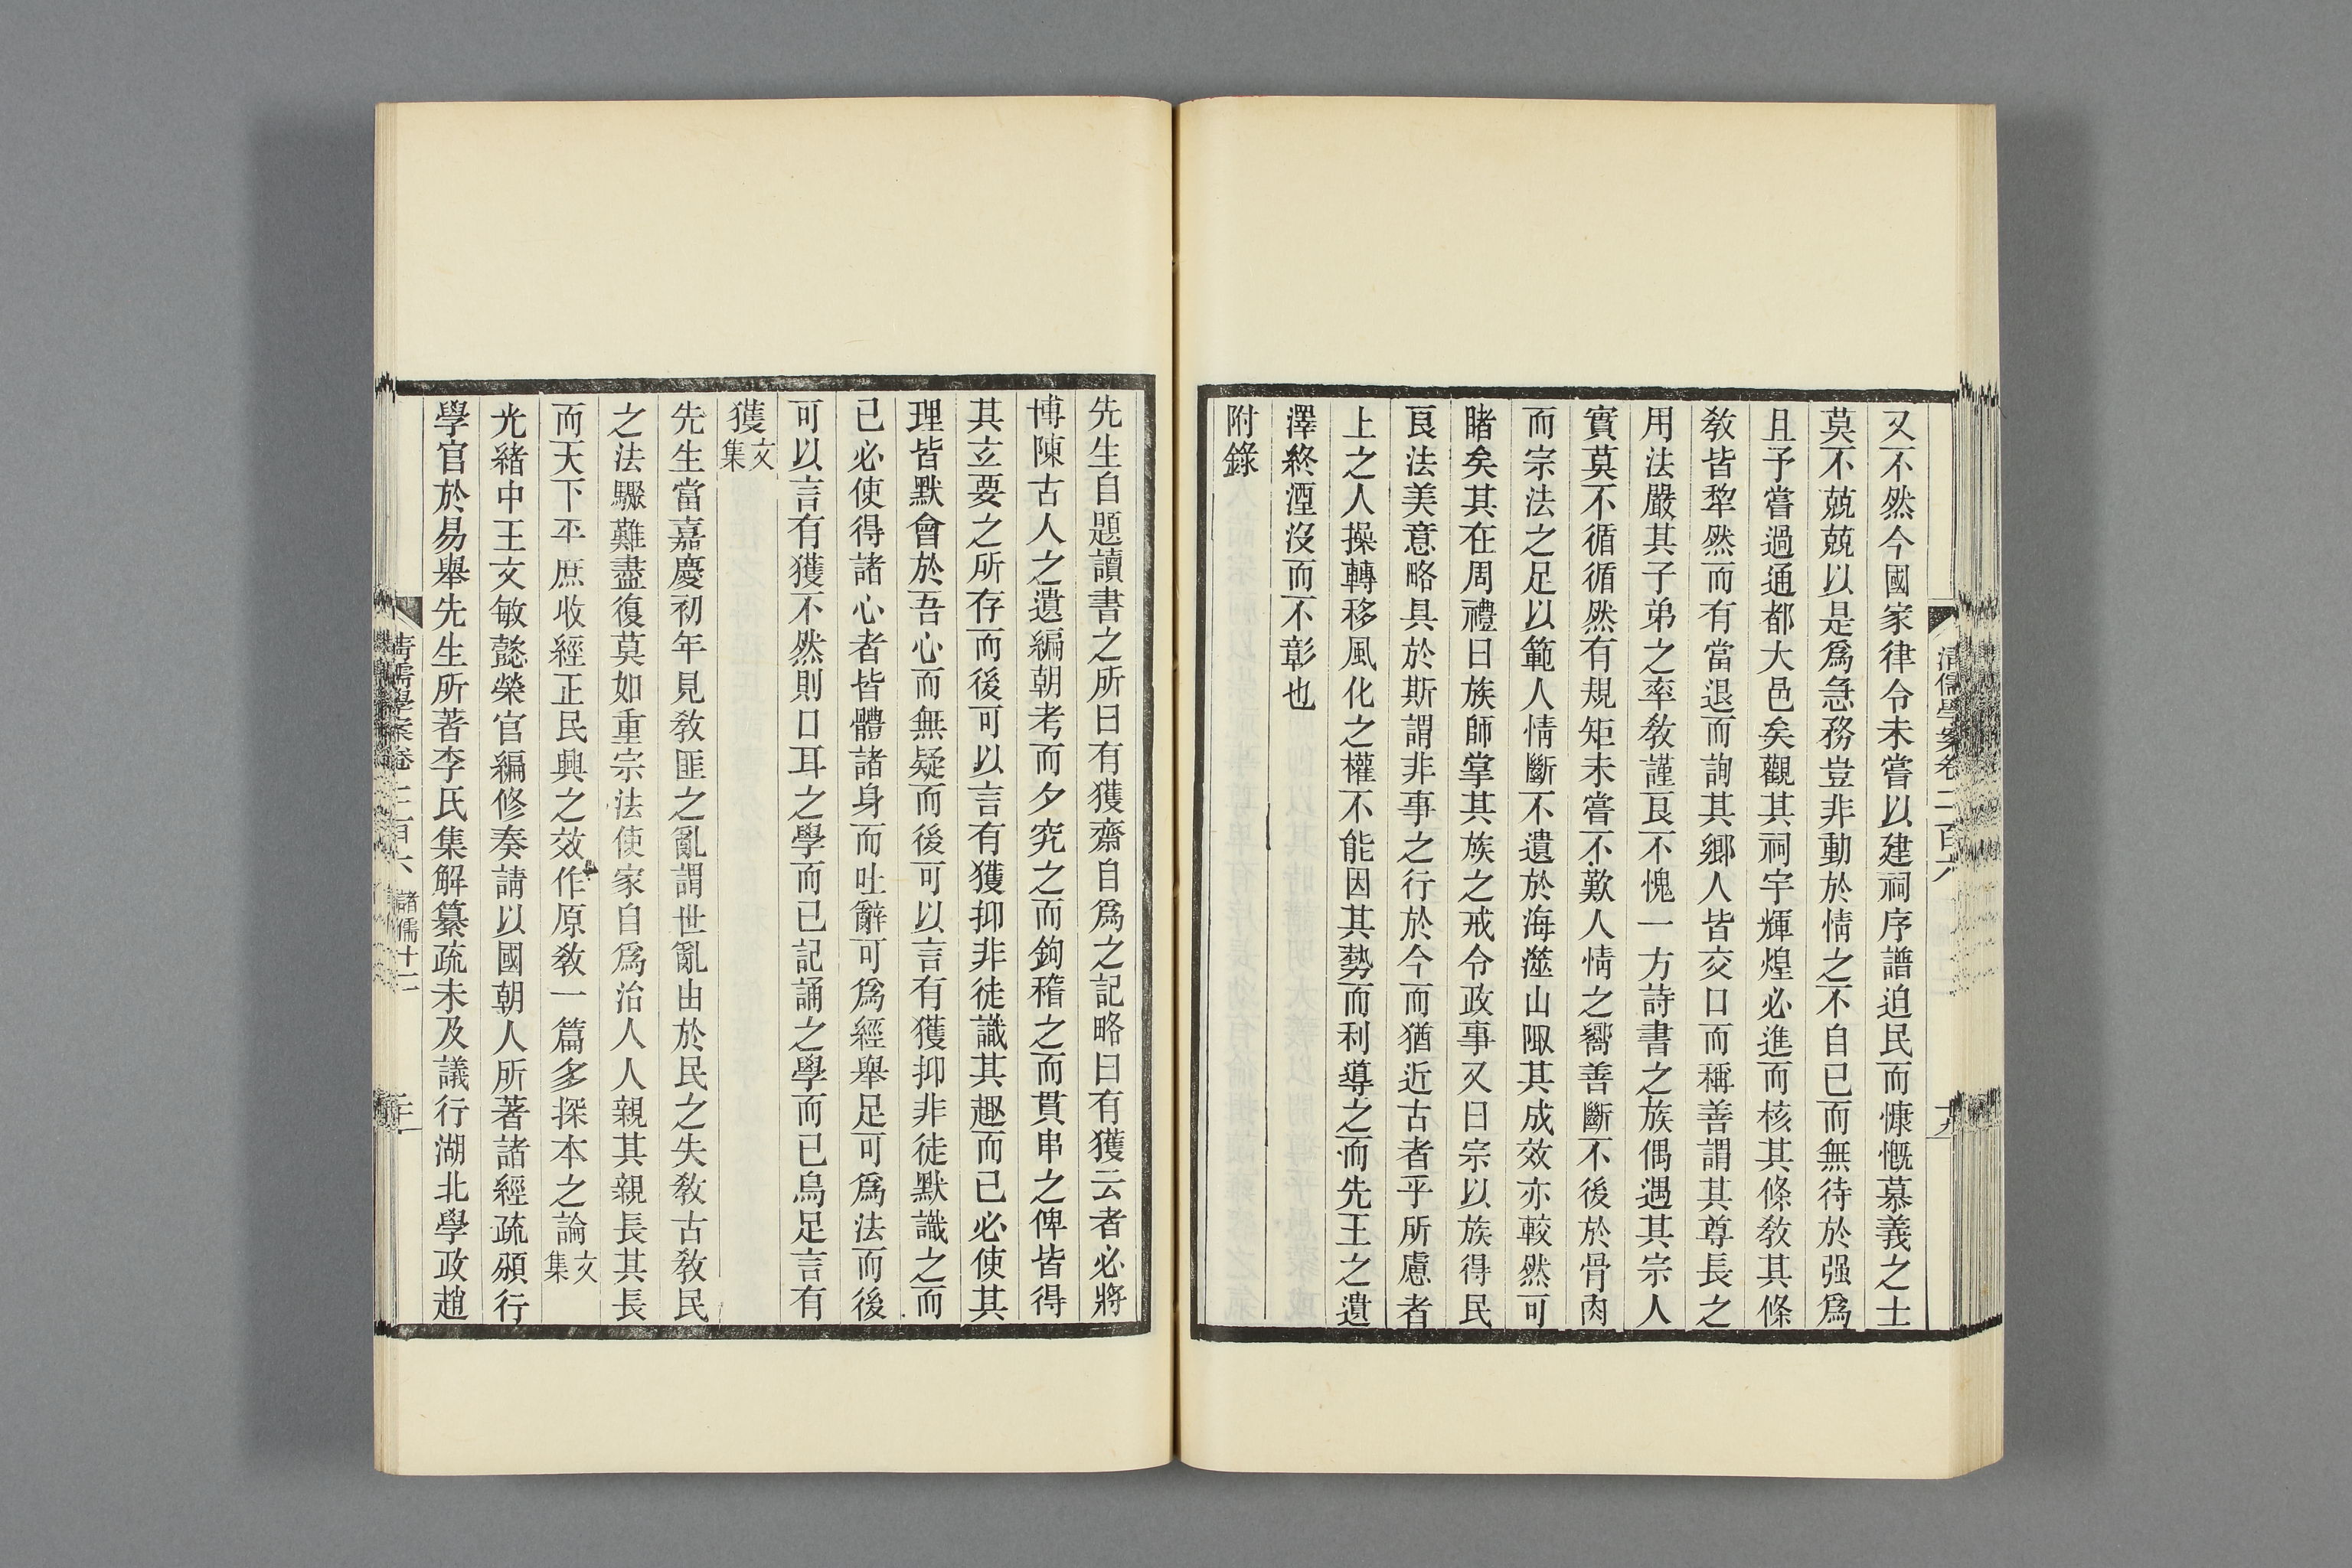 又不然今國家律令未嘗以建祠序譜迫民而慷慨慕義之士
莫不兢兢以是爲急務豈非動於情之不自已而無待於强爲
且予嘗過通都大邑矣觀其祠宇輝煌必進而核其條敎其條
敎皆犂然而有當退而詢其鄉人皆交口而稱善謂其尊長之
用法嚴其子弟之率敎謹艮不愧一方詩書之族偶遇其宗人
實莫不循循然有規矩未嘗不歎人情之嚮善斷不後於骨肉
而宗法之足以範人情斷不遺於海澨山陬其成效亦較然可
睹矣其在周禮曰族師掌其族之戒令政事又曰宗以族得民
艮法美意略具於斯謂非事之行於今而猶近古者乎所慮者
上之人操轉移風化之權不能因其勢而利導之而先王之遺
澤終湮沒而不彰也
附錄
清儒學案卷二百六
十九
先生自題讀書之所曰有獲齋自爲之記略曰有獲云者必將
博陳古人之遺編朝考而夕究之而鉤稽之而貫串之俾皆得
其立要之所存而後可以言有獲抑非徒識其趣而已必使其
理皆默會於吾心而無疑而後可以言有獲抑非徒默識之而
已必使得諸心者皆體諸身而吐辭可爲經舉足可爲法而後
可以言有獲不然則口耳之學而已記誦之學而已烏足言有
獲文集
先生當嘉慶初年見敎匪之亂謂世亂由於民之失敎古敎民
之法驟難盡復莫如重宗法使家自爲治人人親其親長其長
而天下平庶收經正民興之效作原敎一篇多探本之論文集
光緒中王文敏懿榮官編修奏請以國朝人所著諸經疏頒行
學官於易舉先生所著李氏集解纂疏未及議行湖北學政趙
清儒學案卷二百六 諸儒十二